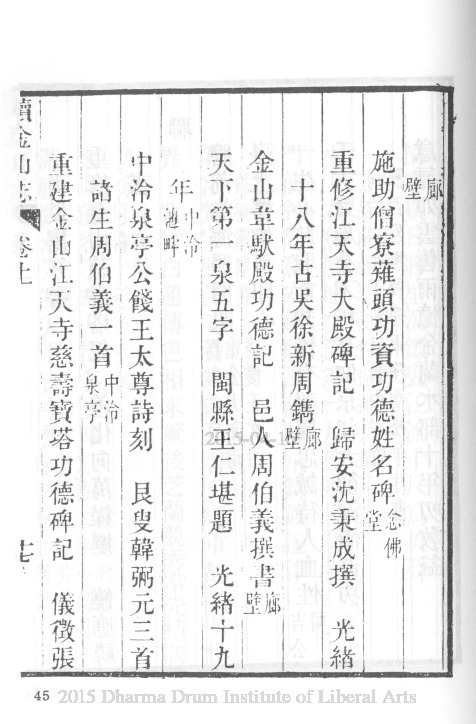 廊壁
施助僧寮薙頭功資功德姓名碑 念佛堂
重修江天寺大殿碑記 歸安沈秉成撰 光緒
十八年古吳徐新周鐫 廊壁
金山韋馱殿功德記 邑人周伯義撰書 廊壁
天下第一泉五字 閩縣王仁堪題 光緒十九
年 中泠池畔
中泠泉亭公餞王太尊詩刻 艮叟韓弼元三首
諸生周伯義一首 中泠泉亭
重建金山江天寺慈壽寶塔功德碑記 儀徵張
續金山志 卷 十七
45 2015 Dharma Drum Institute of Liberal Arts